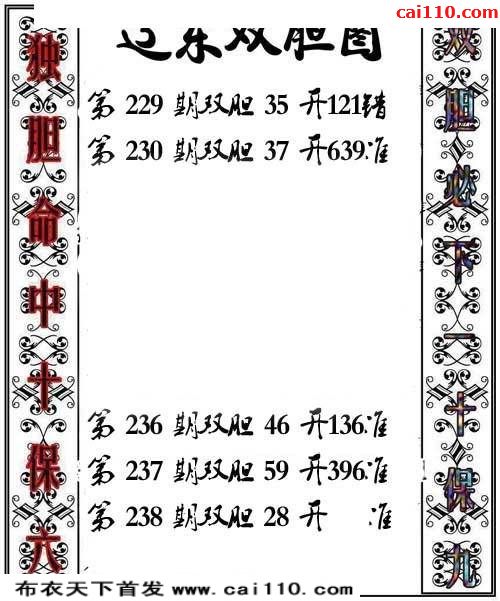 cai110.com
双胆图
第 229 期双胆 35 开121错
第 230 期双胆 37 开639准
第 236 期双胆 46 开136准
第 237 期双胆 59 开396准
第 238 期双胆 28 开 准
独胆命中十保六
双胆必下一十保九
布衣天下首发 www.cai110.com